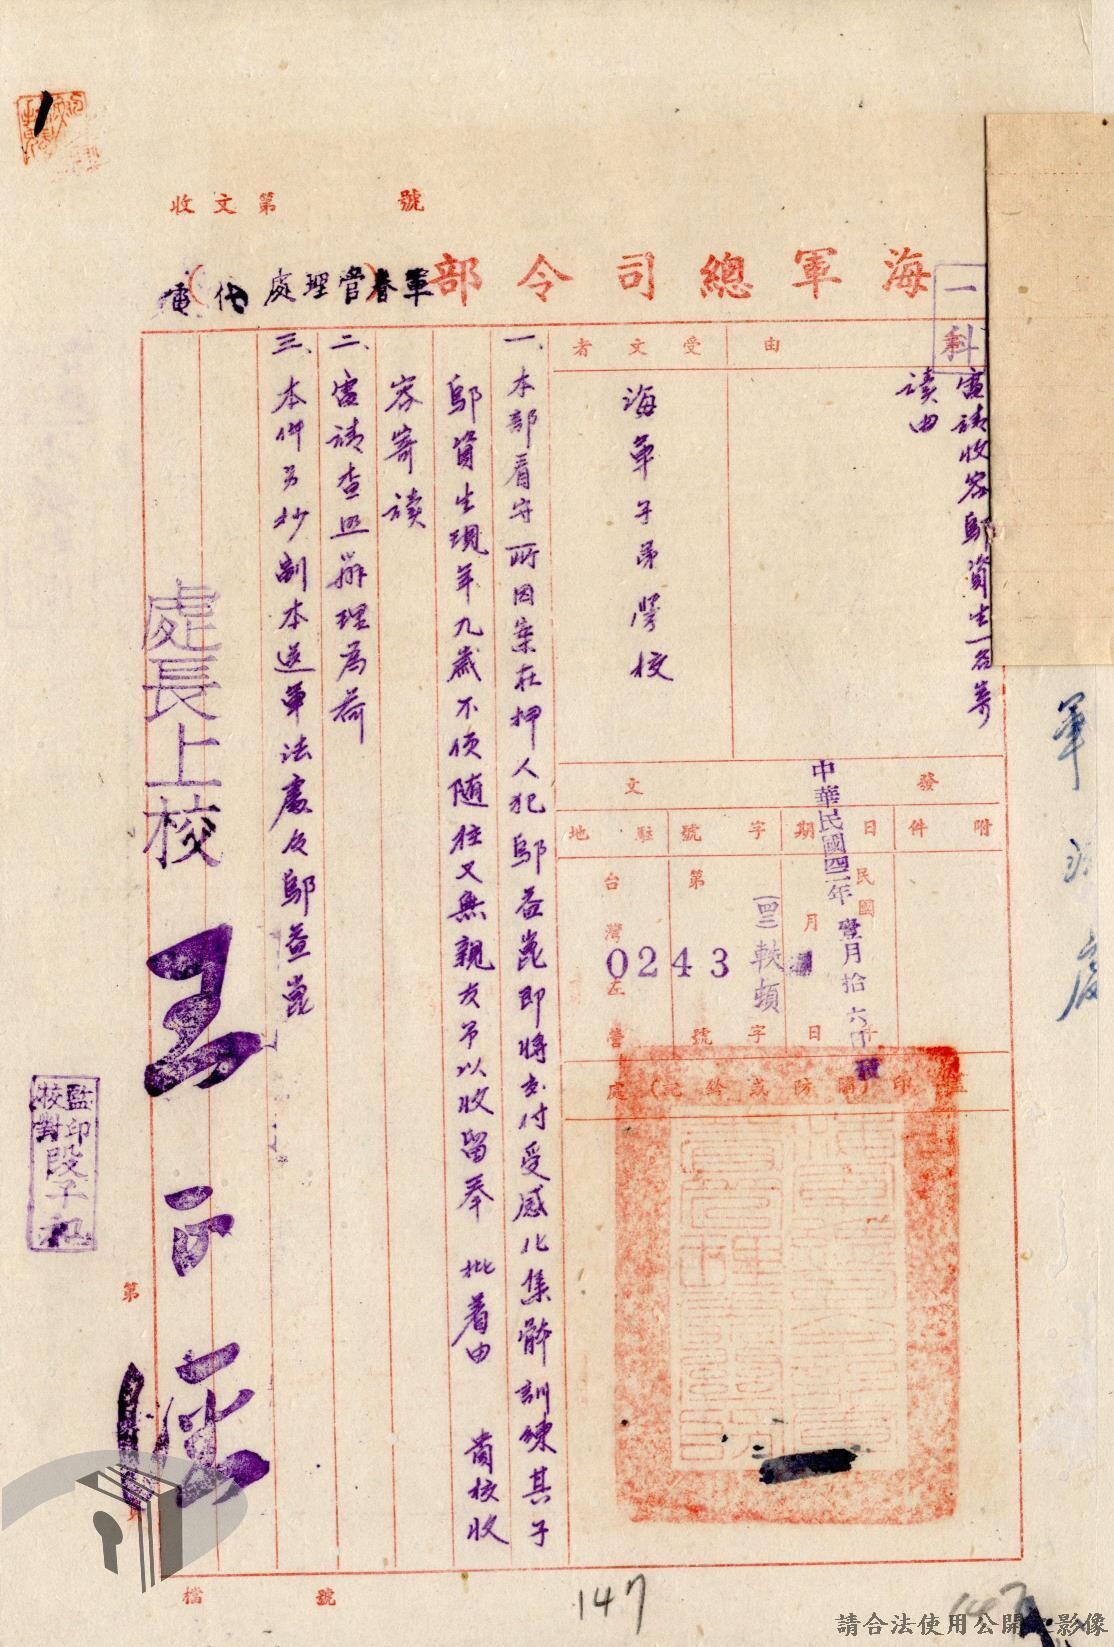 收文第　號
海軍總司令部（軍眷管理處）代電
一科
由
電請收容鄔資生一名寄
讀由
受文者
海軍子弟學校
發文
附件
日期
字號
駐地
中華民國四二年壹月拾六日
民國　月　日
（四二）軼頓字
第0243號
台灣左營
蓋印（關防或鈐記）處
一、本部看守所因案在押人犯鄔益崑即將交付受感化集訓練其子
鄔資生現年九歲不便隨往又無親友予以收留奉　批着由　貴校收
容寄讀
二、電請查照辦理為荷
三、本件另抄副本送軍法處及鄔益崑
處長上校
監印
校對
第　頁
檔　號
軍法處
147
147
請合法使用公開之影像